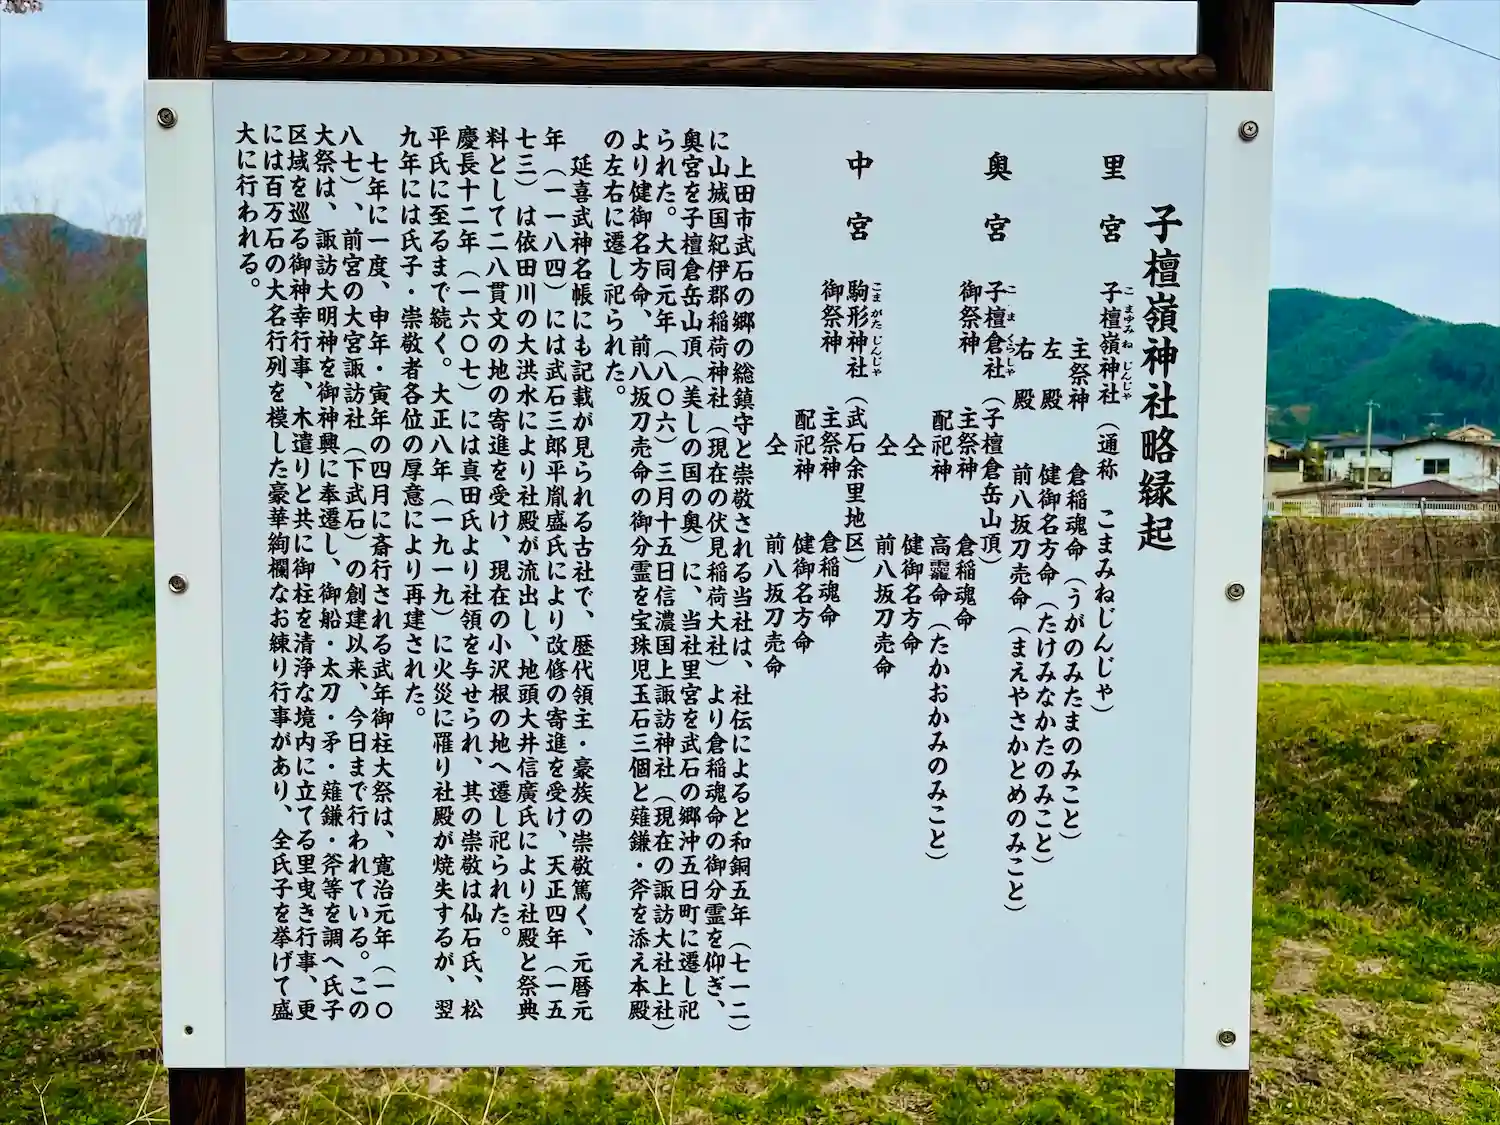 子檀嶺神社略縁起
里宮 子檀嶺神社(通称 こまみねじんじゃ)
こまゆみね じんじゃ
主祭神 倉稲魂命(うがのみたまのみこと)
左殿 健御名方命(たけみなかたのみこと)
右殿 前八坂刀売命(まえやさかとめのみこと)
奥宮 子檀倉社(子檀倉岳山頂)
こ ま くらしゃ
御祭神 主祭神 倉稲魂命
配祀神 高龗命(たかおかみのみこと)
仝 健御名方命
仝 前八坂刀売命
中宮 駒形神社(武石余里地区)
こま がた じんじゃ
御祭神 主祭神 倉稲魂命
配祀神 健御名方命
仝 前八坂刀売命
上田市武石の郷の総鎮守と崇敬される当社は、社伝によると和銅五年(七一二)
に山城国紀伊郡稲荷神社(現在の伏見稲荷大社)より倉稲魂命の御分霊を仰ぎ、
奥宮を子檀倉岳山頂(美しの国の奥)に、当社里宮を武石の郷沖五日町に遷し祀
られた。大同元年(八〇六)三月十五日信濃国上諏訪神社(現在の諏訪大社上社)
より健御名方命、前八坂刀売命の御分霊を宝珠児玉石三個と薙鎌・斧を添え本殿
の左右に遷し祀られた。
延喜武神名帳にも記載が見られる古社で、歴代領主・豪族の崇敬篤く、元暦元
年(一一八四)には武石三郎平胤盛氏により改修の寄進を受け、天正四年(一五
七三)は依田川の大洪水により社殿が流出し、地頭大井信廣氏により社殿と祭典
料として二八貫文の地の寄進を受け、現在の小沢根の地へ遷し祀られた。
慶長十二年(一六〇七)には真田氏より社領を与せられ、其の崇敬は仙石氏、松
平氏に至るまで続く。大正八年(一九一九)に火災に罹り社殿が焼失するが、翌
九年には氏子・崇敬者各位の厚意により再建された。
七年に一度、申年・寅年の四月に斎行される武年御柱大祭は、寛治元年(一〇
八七)、前宮の大宮諏訪社(下武石)の創建以来、今日まで行われている。この
大祭は、諏訪大明神を御神輿に奉遷し、御船・太刀・矛・薙鎌・斧等を調へ氏子
区域を巡る御神幸行事、木遣りと共に御柱を清浄な境内に立てる里曳き行事、更
には百万石の大名行列を模した豪華絢欄なお練り行事があり、全氏子を挙げて盛
大に行われる。